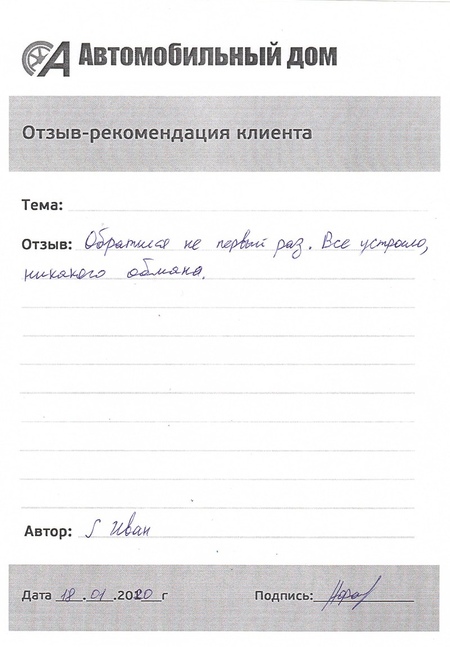 Автомобильный дом
Отзыв-рекомендация клиента
Тема:
Отзыв: Обратился не первый раз. Все устроило,
никакого обмана.
Автор: Иван
Дата 18.01.2020 г Подпись: